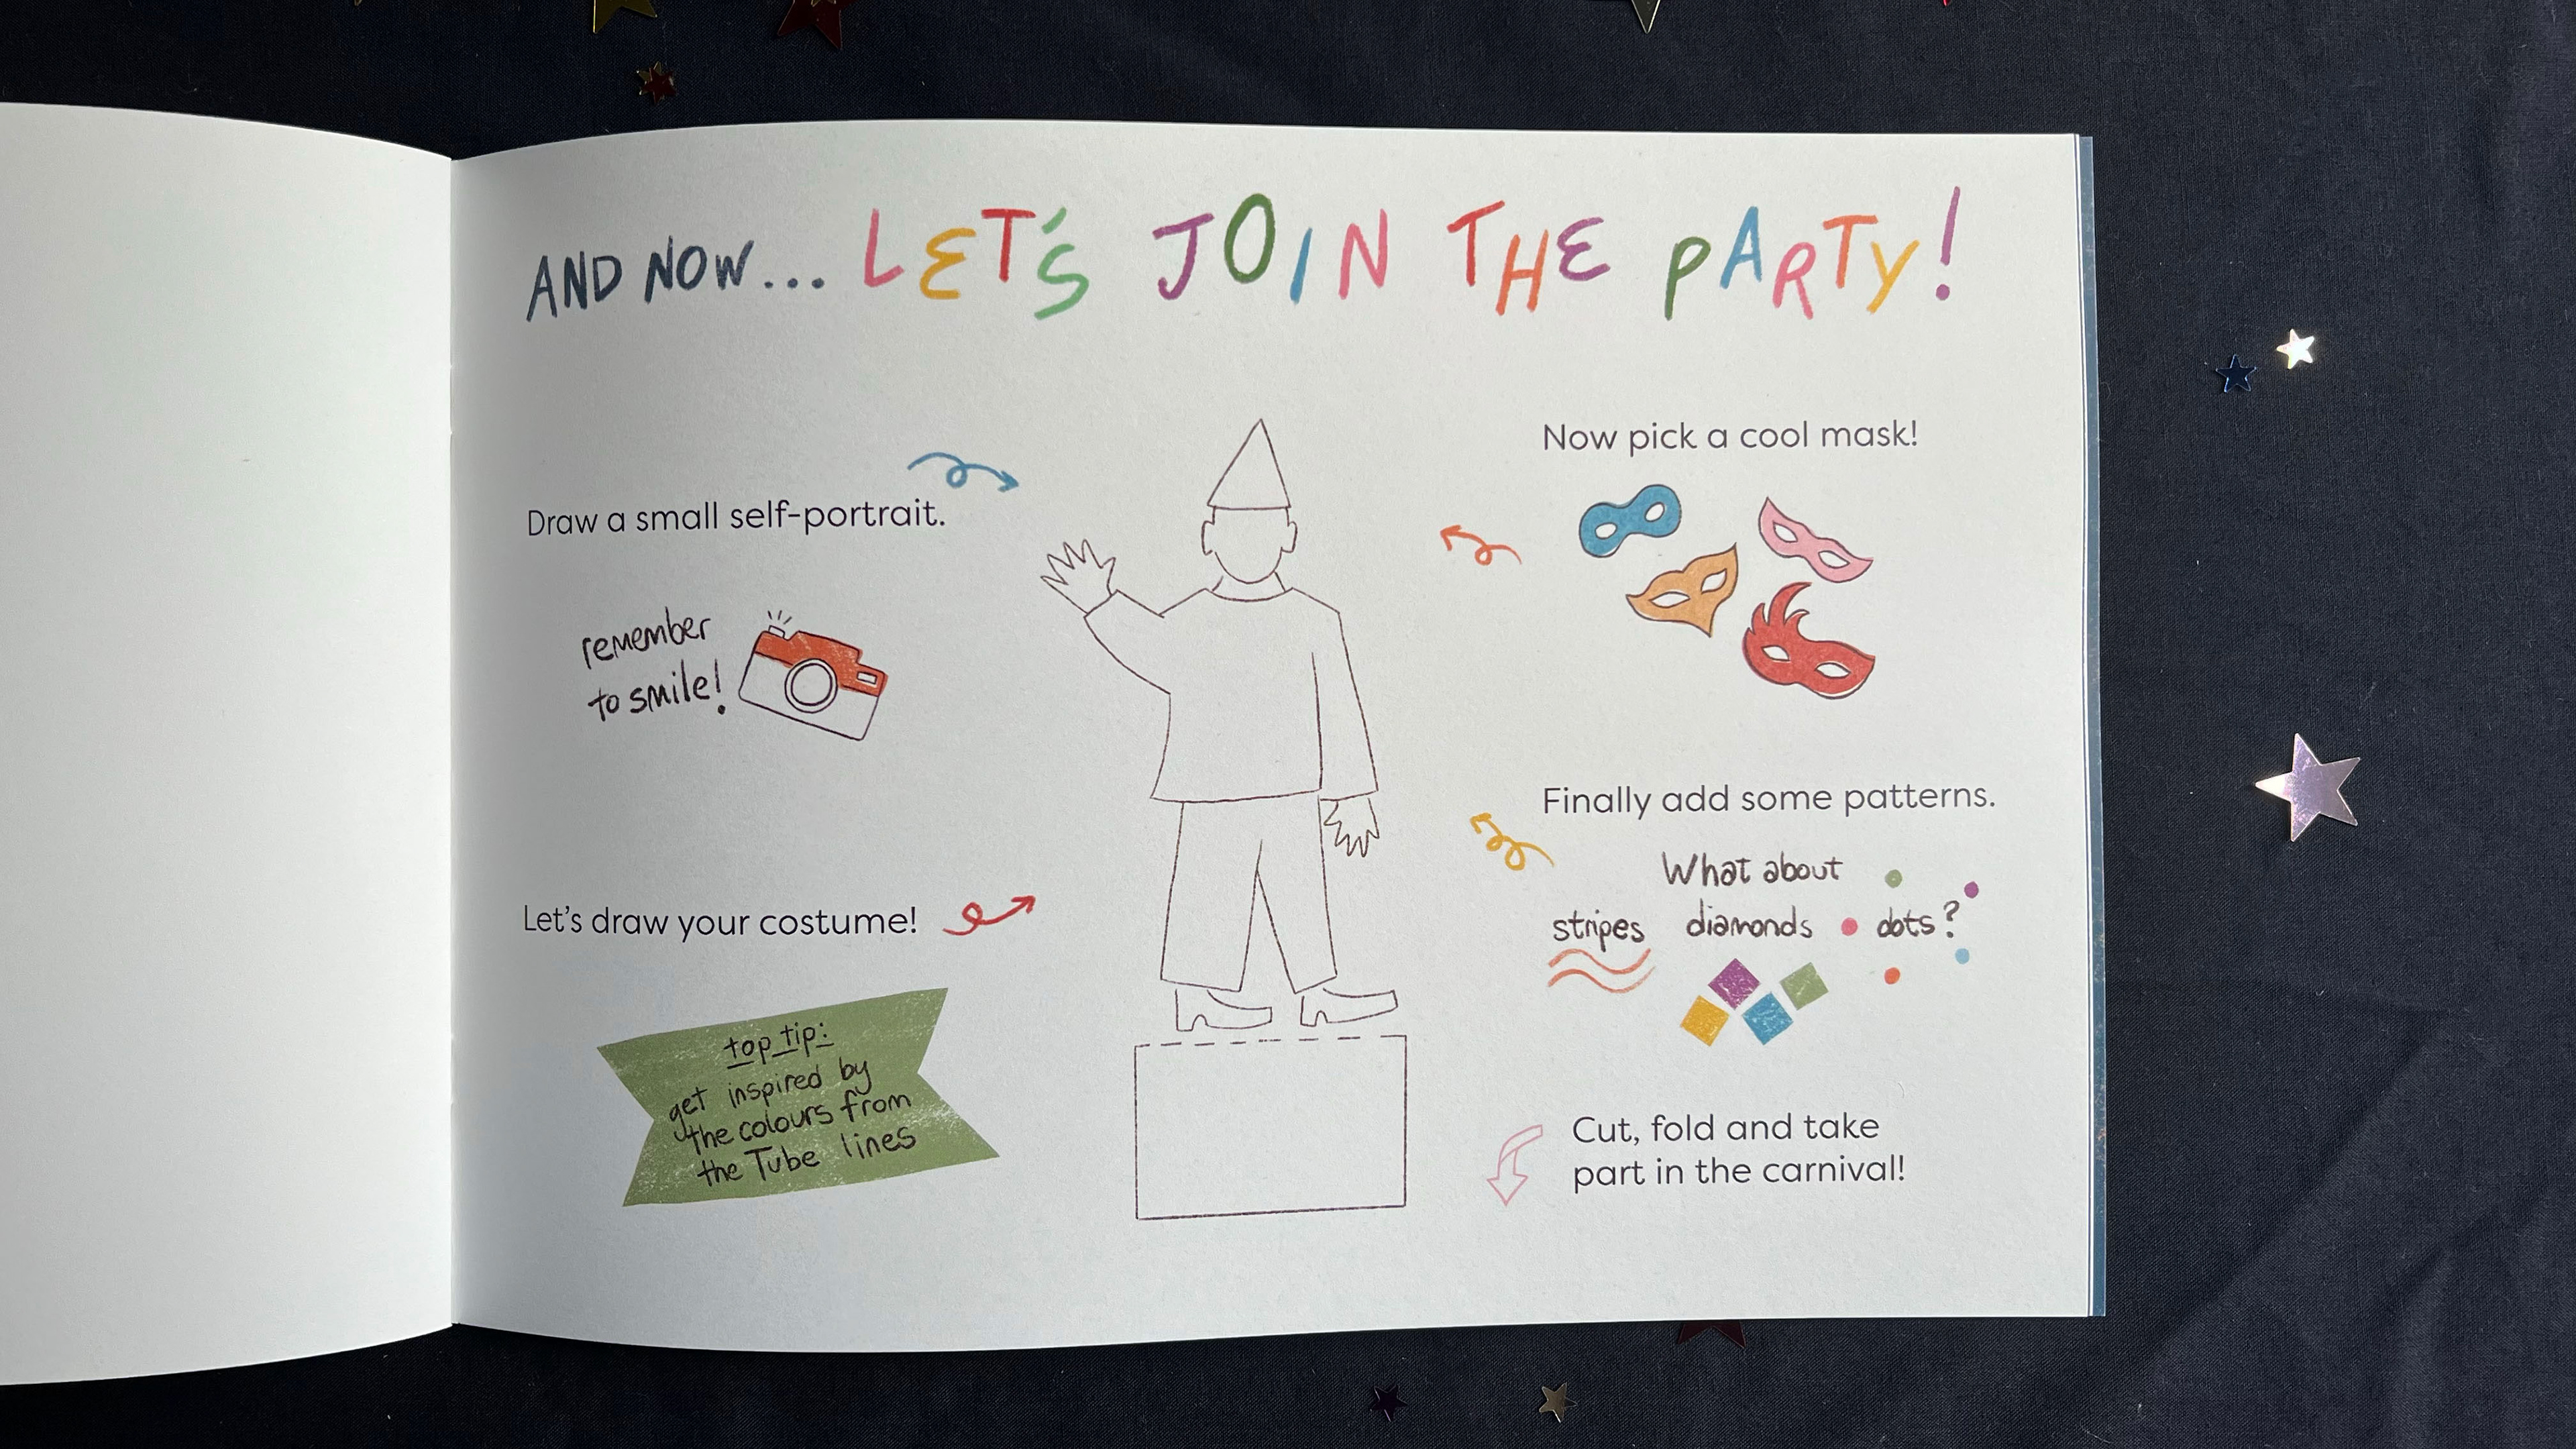 AND NOW... LET'S JOIN THE PARTY!
Draw a small self-portrait.
remember
to smile!
Let's draw your costume!
top tip:
get inspired by
the colours from
the Tube lines
Now pick a cool mask!
Finally add some patterns.
What about
stripes diamonds dots?
Cut, fold and take
part in the carnival!